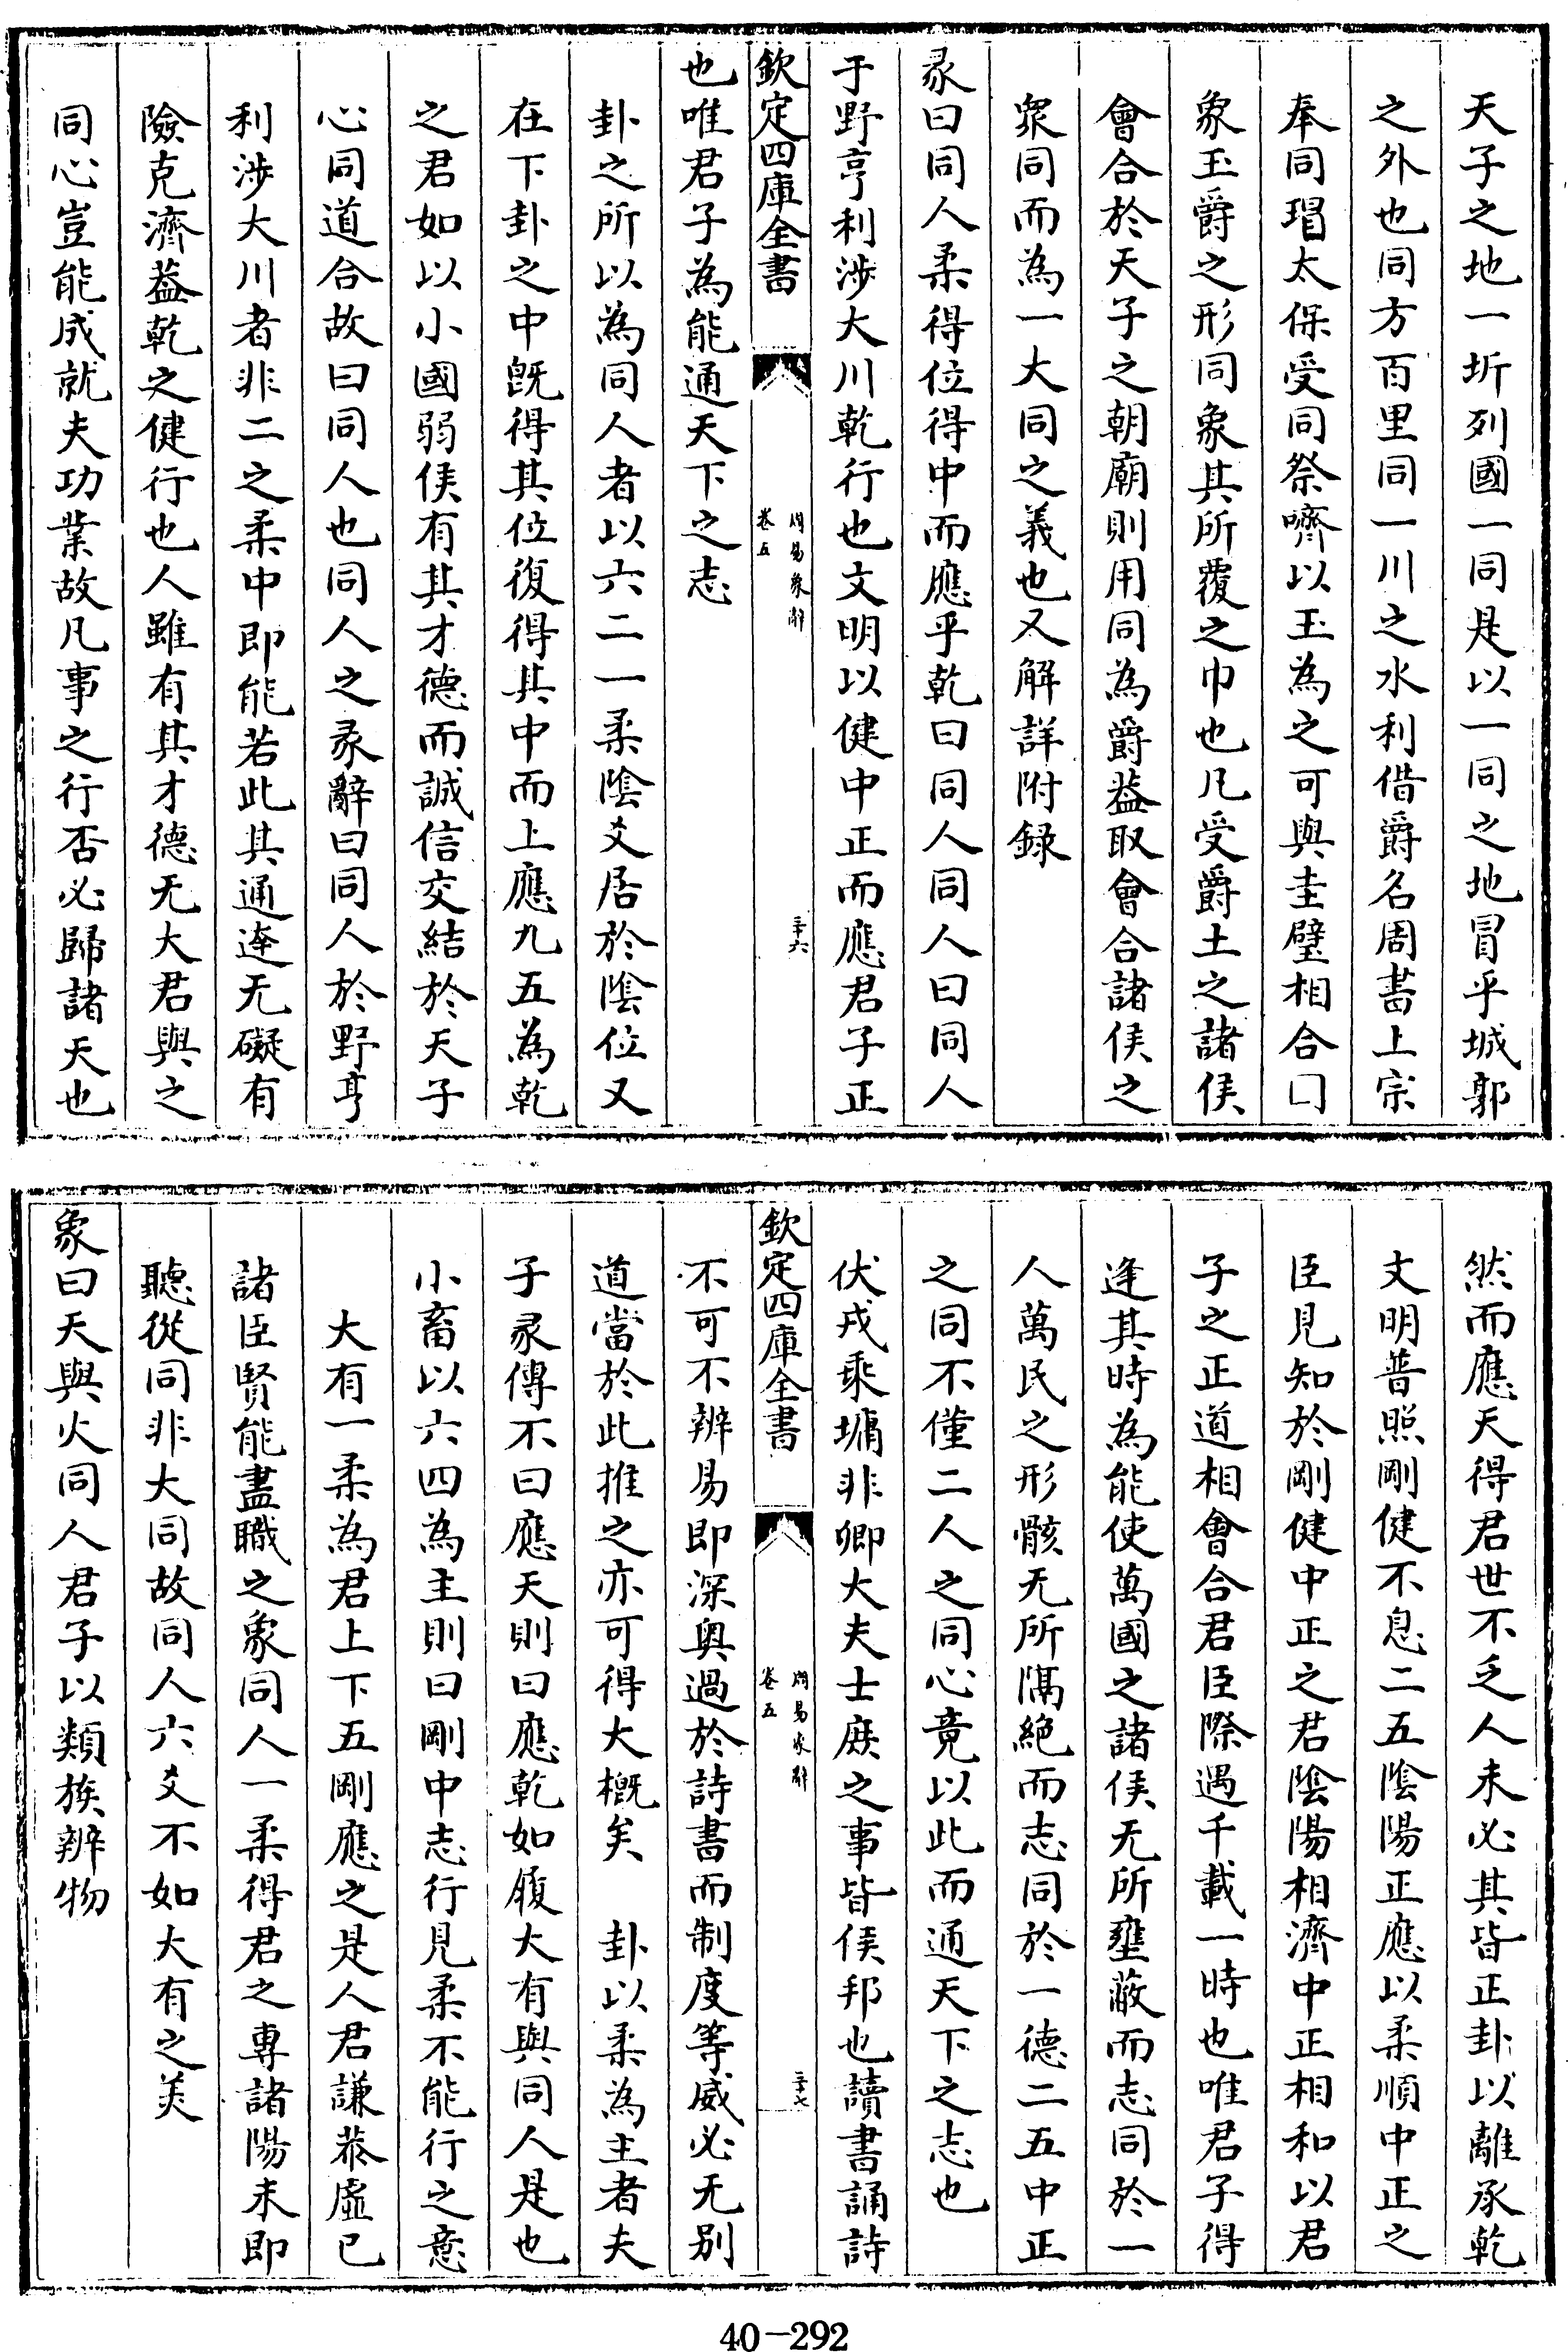 天子之地一圻列國一同是以一同之地冒乎城郭
之外也同方百里同一川之水利借爵名周書上宗
奉同瑁太保受同祭嚌以玉為之可與圭璧相合冂
象玉爵之形同象其所覆之巾也凡受爵土之諸侯
會合於天子之朝廟則用同為爵葢取會合諸侯之
衆同而為一大同之義也又解詳附錄
彖曰同人柔得位得中而應乎乾曰同人同人曰同人
于野亨利涉大川乾行也文明以健中正而應君子正
欽定四庫全書
周易象辭
卷五
三十六
也唯君子為能通天下之志
卦之所以為同人者以六二一柔陰爻居於陰位又
在下卦之中既得其位復得其中而上應九五為乾
之君如以小國弱侯有其才德而誠信交結於天子
心同道合故曰同人也同人之彖辭曰同人於野亨
利涉大川者非二之柔中即能若此其通達无礙有
險克濟葢乾之健行也人雖有其才德无大君與之
同心豈能成就夫功業故凡事之行否必歸諸天也
然而應天得君世不乏人未必其皆正卦以離承乾
文明普照剛健不息二五陰陽正應以柔順中正之
臣見知於剛健中正之君陰陽相濟中正相和以君
子之正道相會合君臣際遇千載一時也唯君子得
逢其時為能使萬國之諸侯无所壅蔽而志同於一
人萬民之形骸无所隔絶而志同於一德二五中正
之同不僅二人之同心竟以此而通天下之志也
伏戎乘墉非卿大夫士庶之事皆侯邦也讀書誦詩
欽定四庫全書
周易象辭
卷五
三十七
不可不辨易即深奥過於詩書而制度等威必无别
道當於此推之亦可得大概矣　卦以柔為主者夫
子彖傳不曰應天則曰應乾如履大有與同人是也
小畜以六四為主則曰剛中志行見柔不能行之意
大有一柔為君上下五剛應之是人君謙恭虛已
諸臣賢能盡職之象同人一柔得君之專諸陽未即
聽從同非大同故同人六爻不如大有之美
象曰天與火同人君子以類族辨物
40-292